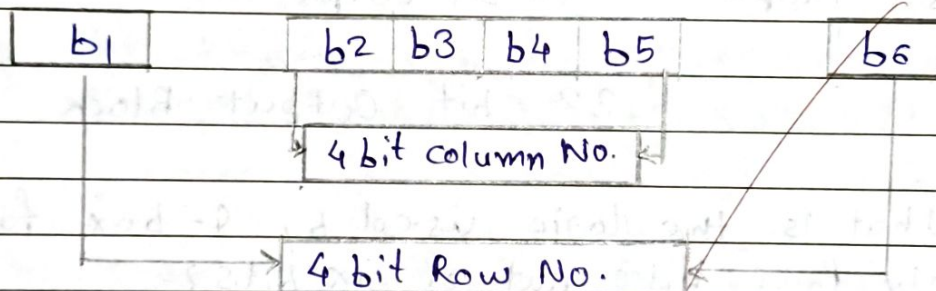 b1 b2 b3 b4 b5 b6
4 bit column No.
4 bit Row No.